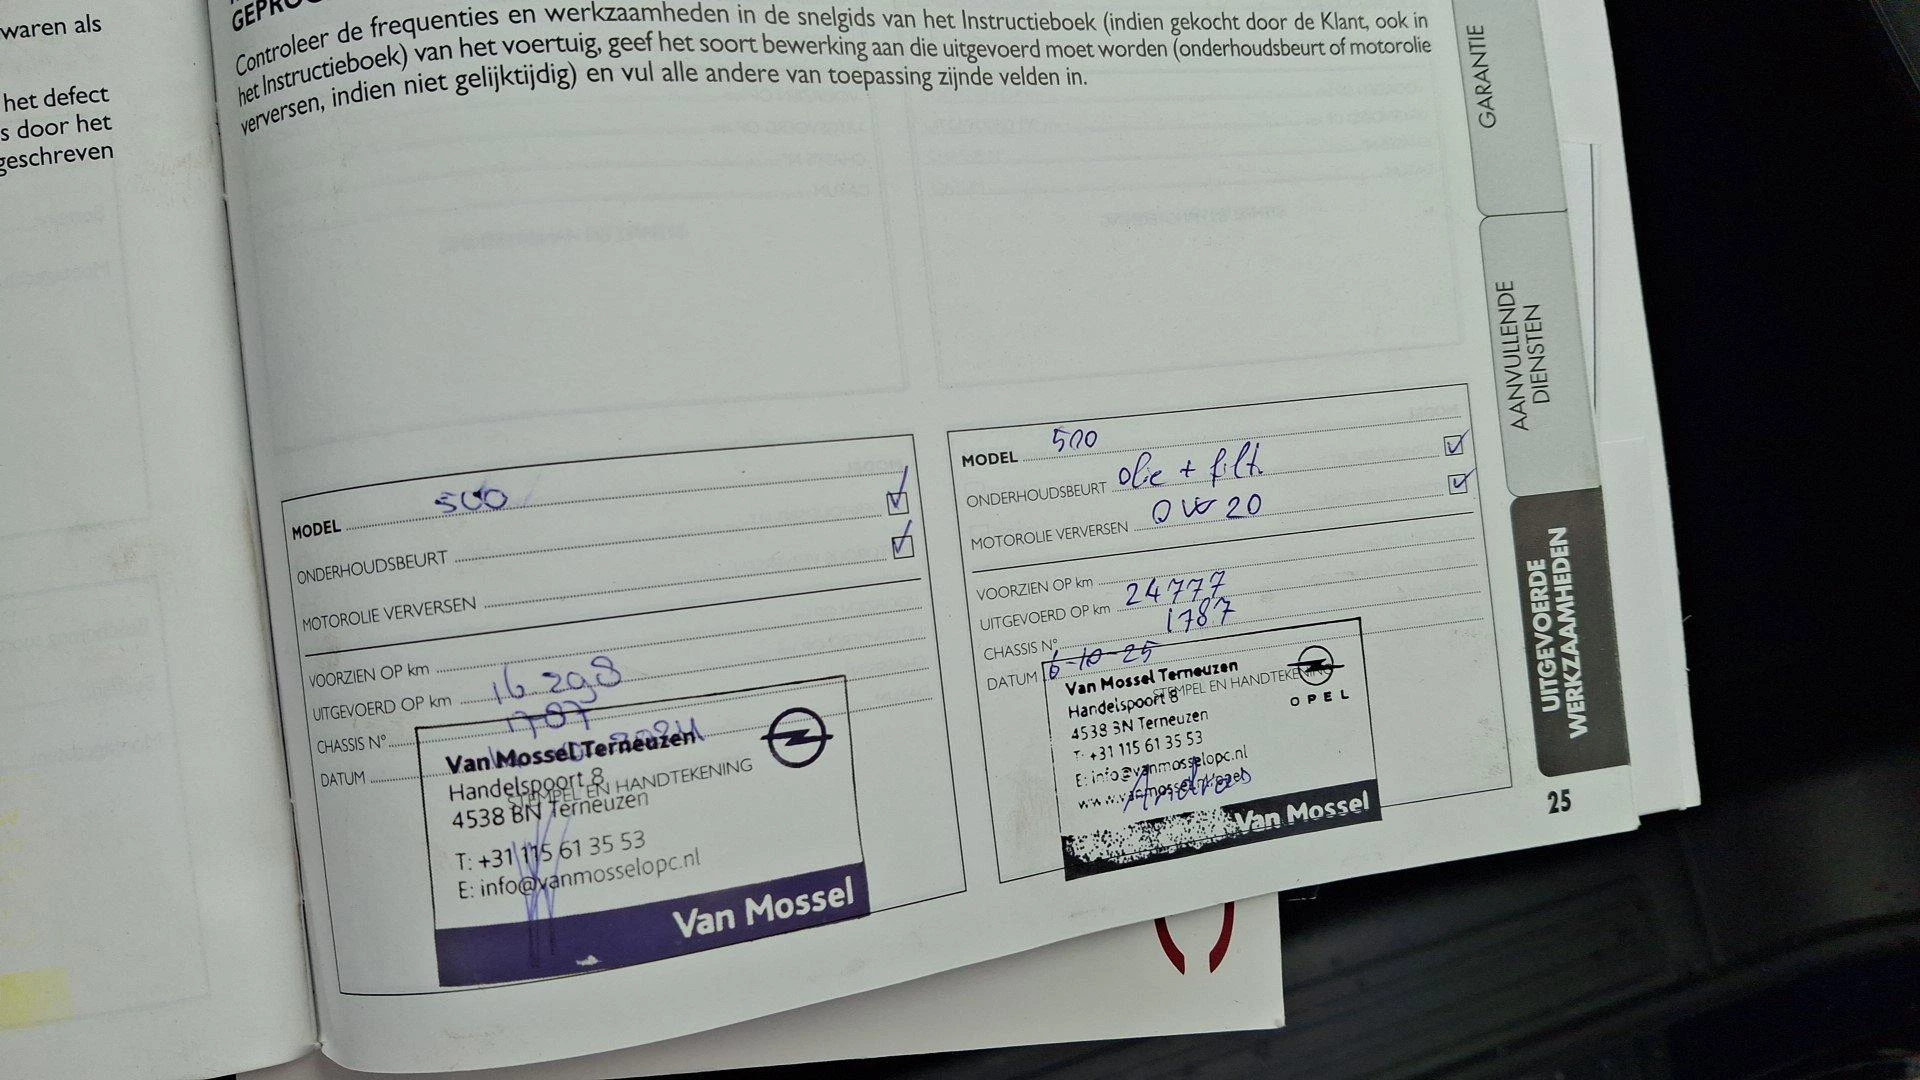 waren als
het defect
s door het
geschreven
Controleer de frequenties en werkzaamheden in de snelgids van het Instructieboek (indien gekocht door de Klant, ook in
het Instructieboek) van het voertuig, geef het soort bewerking aan die uitgevoerd moet worden (onderhoudsbeurt of motorolie
verversen, indien niet gelijktijdig) en vul alle andere van toepassing zijnde velden in.
MODEL 500
ONDERHOUDSBEURT
MOTOROLIE VERVERSEN
VOORZIEN OP km
UITGEVOERD OP km 16 298
CHASSIS N° 1787
DATUM
STEMPEL EN HANDTEKENING
Van Mossel Terneuzen
Handelspoort 8
4538 BN Terneuzen
T: +31 115 61 35 53
E: info@vanmosselopc.nl
Van Mossel
MODEL 500
ONDERHOUDSBEURT olie + filt
MOTOROLIE VERVERSEN 0W20
VOORZIEN OP km
UITGEVOERD OP km 24777
CHASSIS N° 1787
DATUM 6-10-25
STEMPEL EN HANDTEKENING
Van Mossel Terneuzen
Handelspoort 8
4538 BN Terneuzen
T: +31 115 61 35 53
E: info@vanmosselopc.nl
OPEL
Van Mossel
GARANTIE
AANVULLENDE
DIENSTEN
UITGEVOERDE
WERKZAAMHEDEN
25